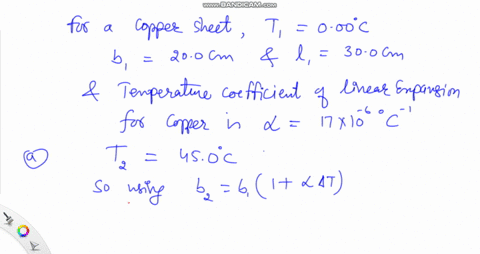 WWW.BANDICAM.COM
for a copper sheet, T₁ = 0.00°C
b₁ = 20.0 cm & l₁ = 30.0 cm
& Temperature coefficient of linear Expansion
for copper is α = 17×10⁻⁶ °C⁻¹
ⓐ T₂ = 45.0°C
So using b₂ = b₁ (1 + α ΔT)